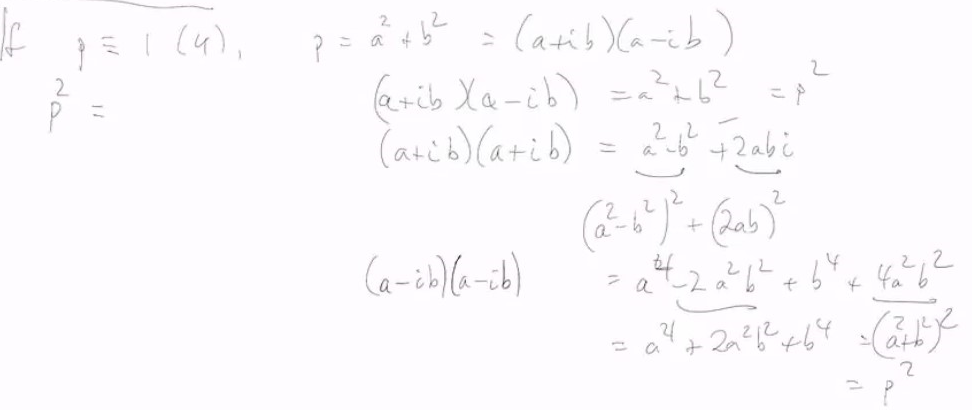 If p ≡ 1 (4), p = a² + b² = (a+ib)(a-ib)
p² = (a+ib)(a-ib) = a² + b² = p²
(a+ib)(a+ib) = a²-b² ∓ 2abi
(a²-b²)² + (2ab)²
(a-ib)(a-ib) = a⁴ - 2a²b² + b⁴ + 4a²b²
= a⁴ + 2a²b² + b⁴ = (a²+b²)²
= p²